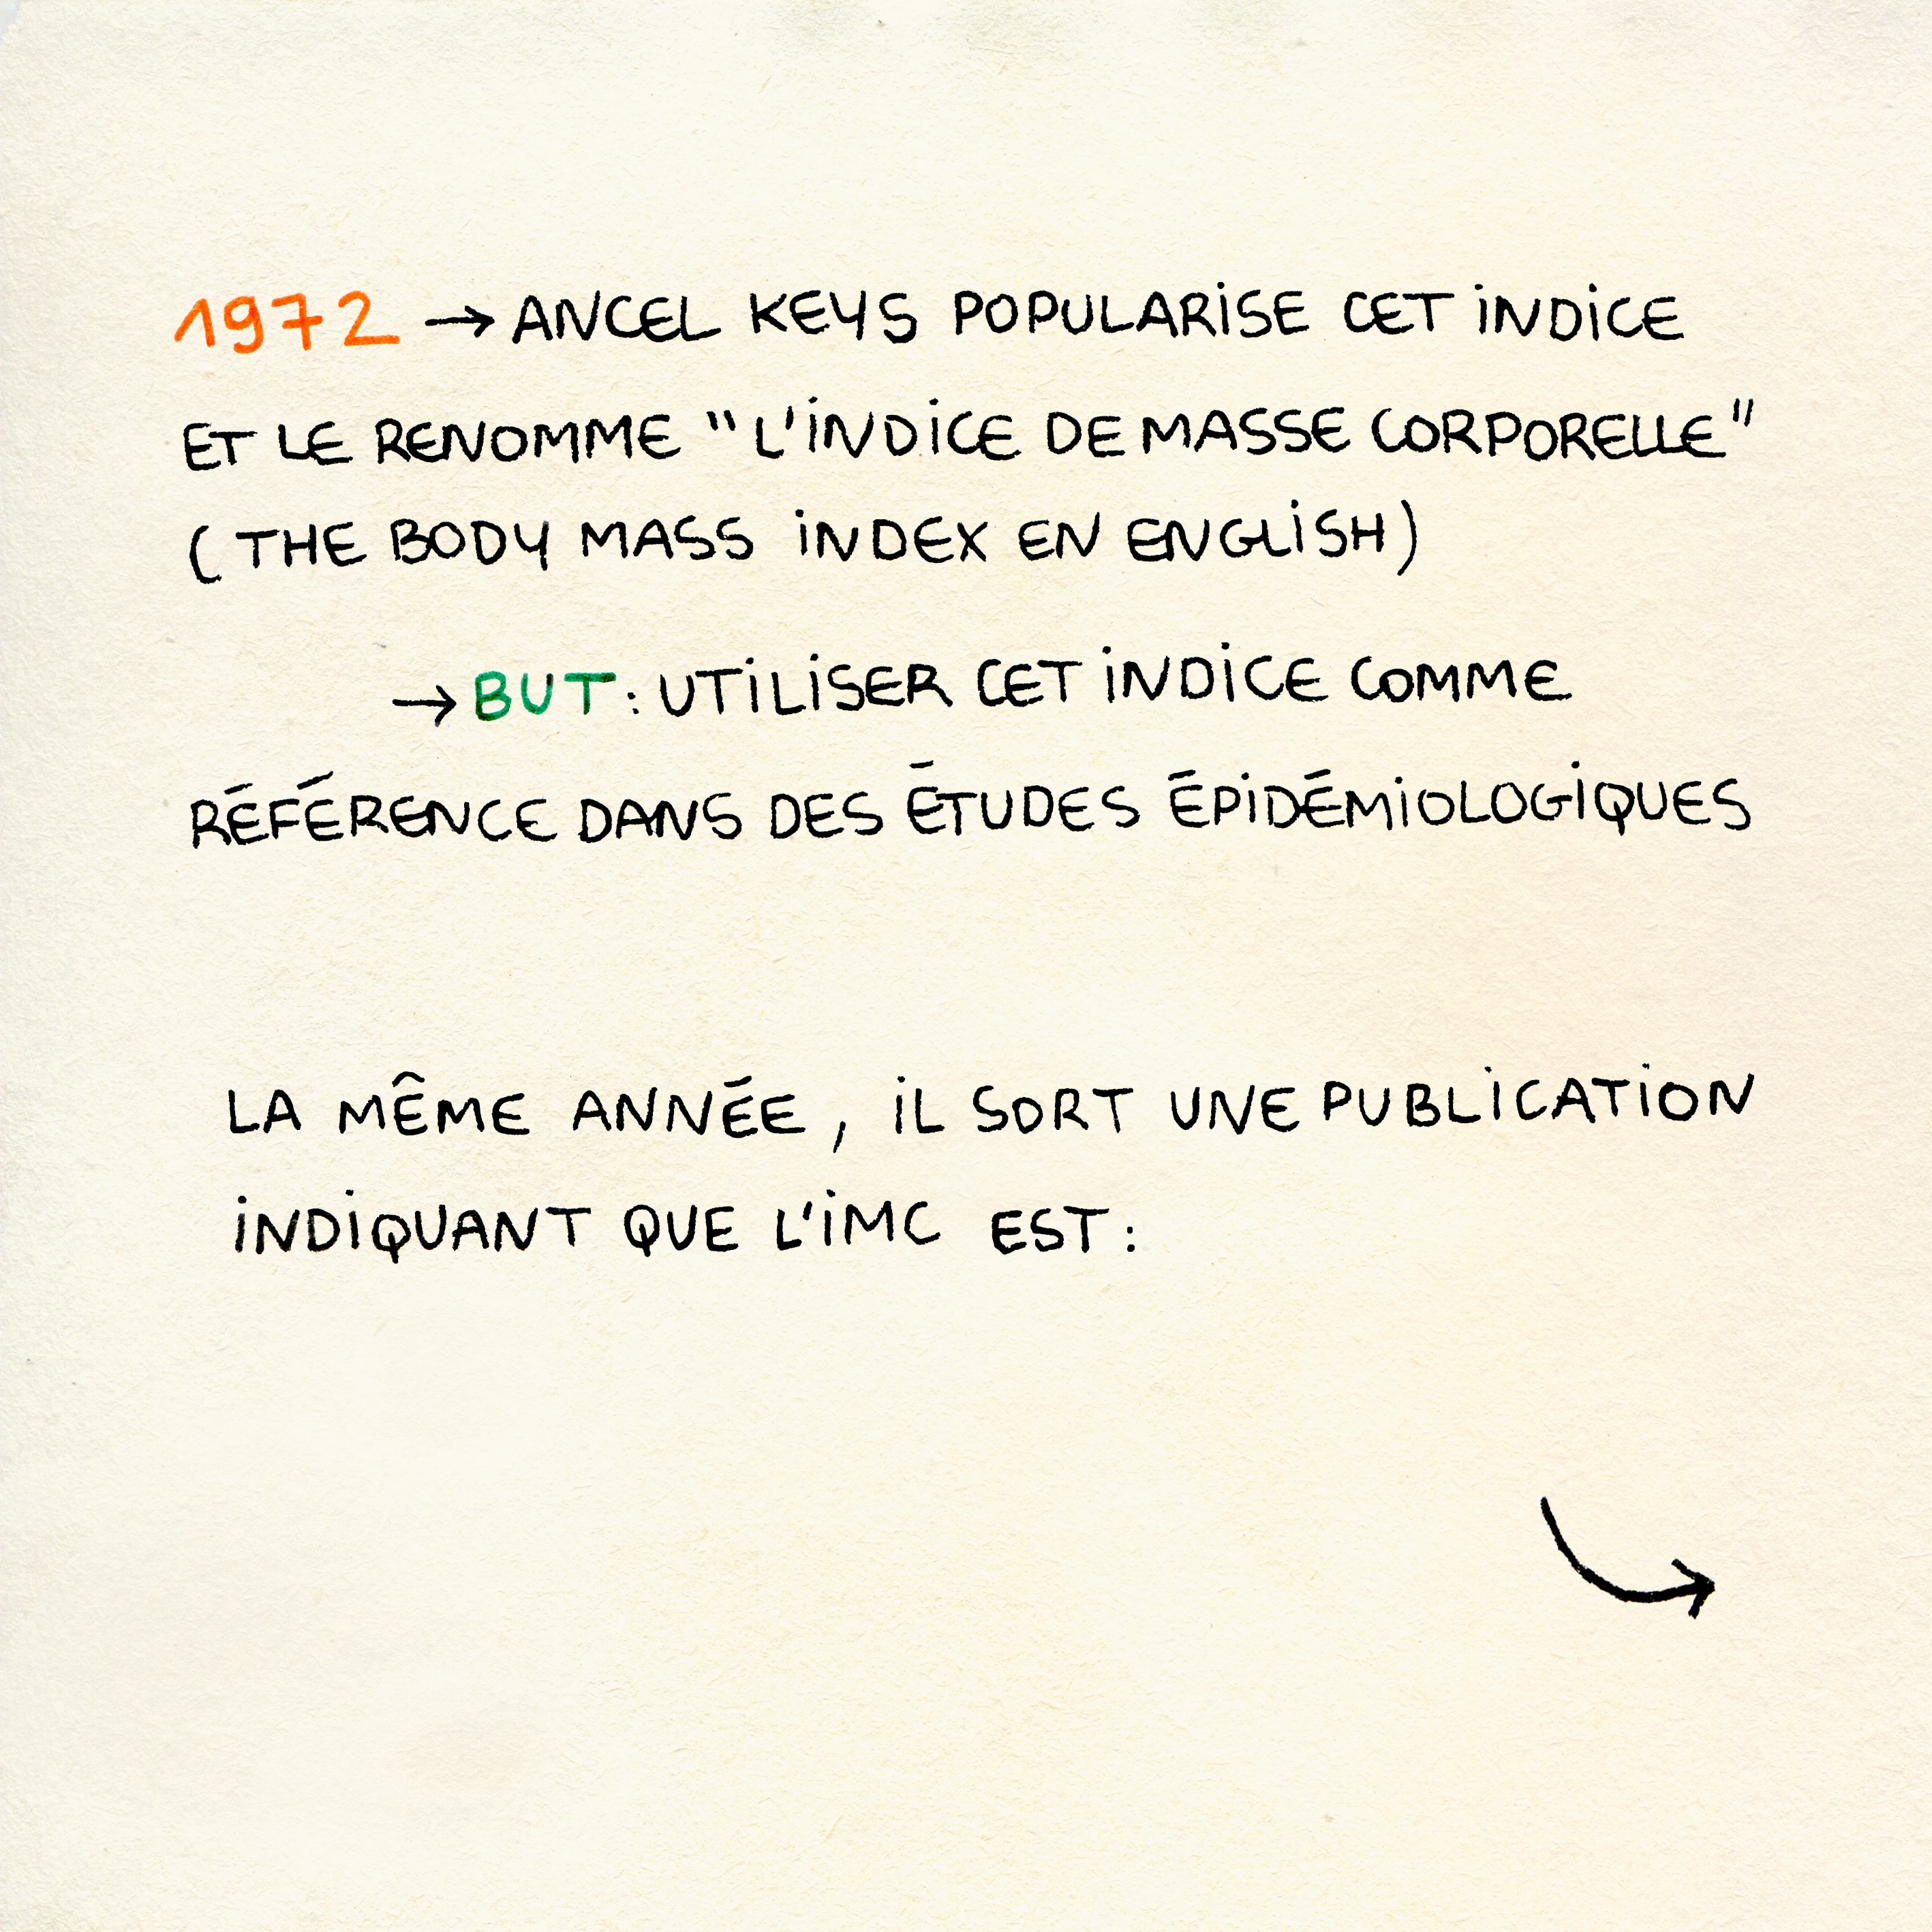 1972 → ANCEL KEYS POPULARISE CET INDICE
ET LE RENOMME "L'INDICE DE MASSE CORPORELLE"
(THE BODY MASS INDEX EN ENGLISH)
→ BUT : UTILISER CET INDICE COMME
RÉFÉRENCE DANS DES ÉTUDES ÉPIDÉMIOLOGIQUES
LA MÊME ANNÉE, IL SORT UNE PUBLICATION
INDIQUANT QUE L'IMC EST :